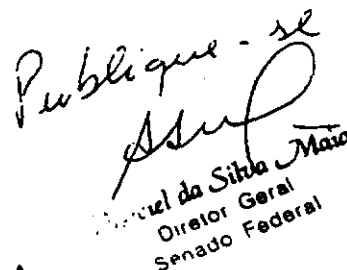 Publique-se
da Silva Maia
Diretor Geral
Senado Federal